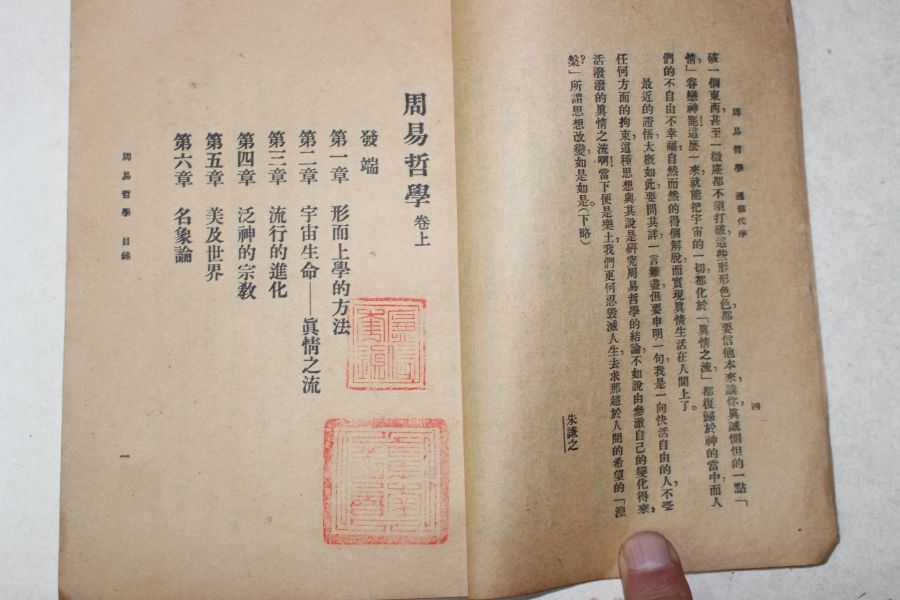 周易哲學 通信代序
四
破一個東西，甚至一微塵都不須打破，這些形形色色都要信他本來，讓你真誠惻怛的一點「
情」眷戀神罷！這麼一來，就能把宇宙的一切，都化於「真情之流」都復歸於神的當中，而人
們的不自由不幸福，自然而然的得個解脫，而實現真情生活在人間上了。
最近的證悟大概如此，要問其詳，一言難盡，但要申明一句，我是一向快活自由的人，不受
任何方面的拘束，這種思想與其說是研究周易哲學的結論，不如說由參澈自己的變化得來，
活潑潑的真情之流啊！當下便是樂土，我們更何忍毀滅人生，去求那超於人間的希望的「涅
槃」？所謂思想改變，如是如是。（下略）
朱謙之
周易哲學 卷上
發端
第一章 形而上學的方法
第二章 宇宙生命——眞情之流
第三章 流行的進化
第四章 泛神的宗教
第五章 美及世界
第六章 名象論
周易哲學 目錄
一